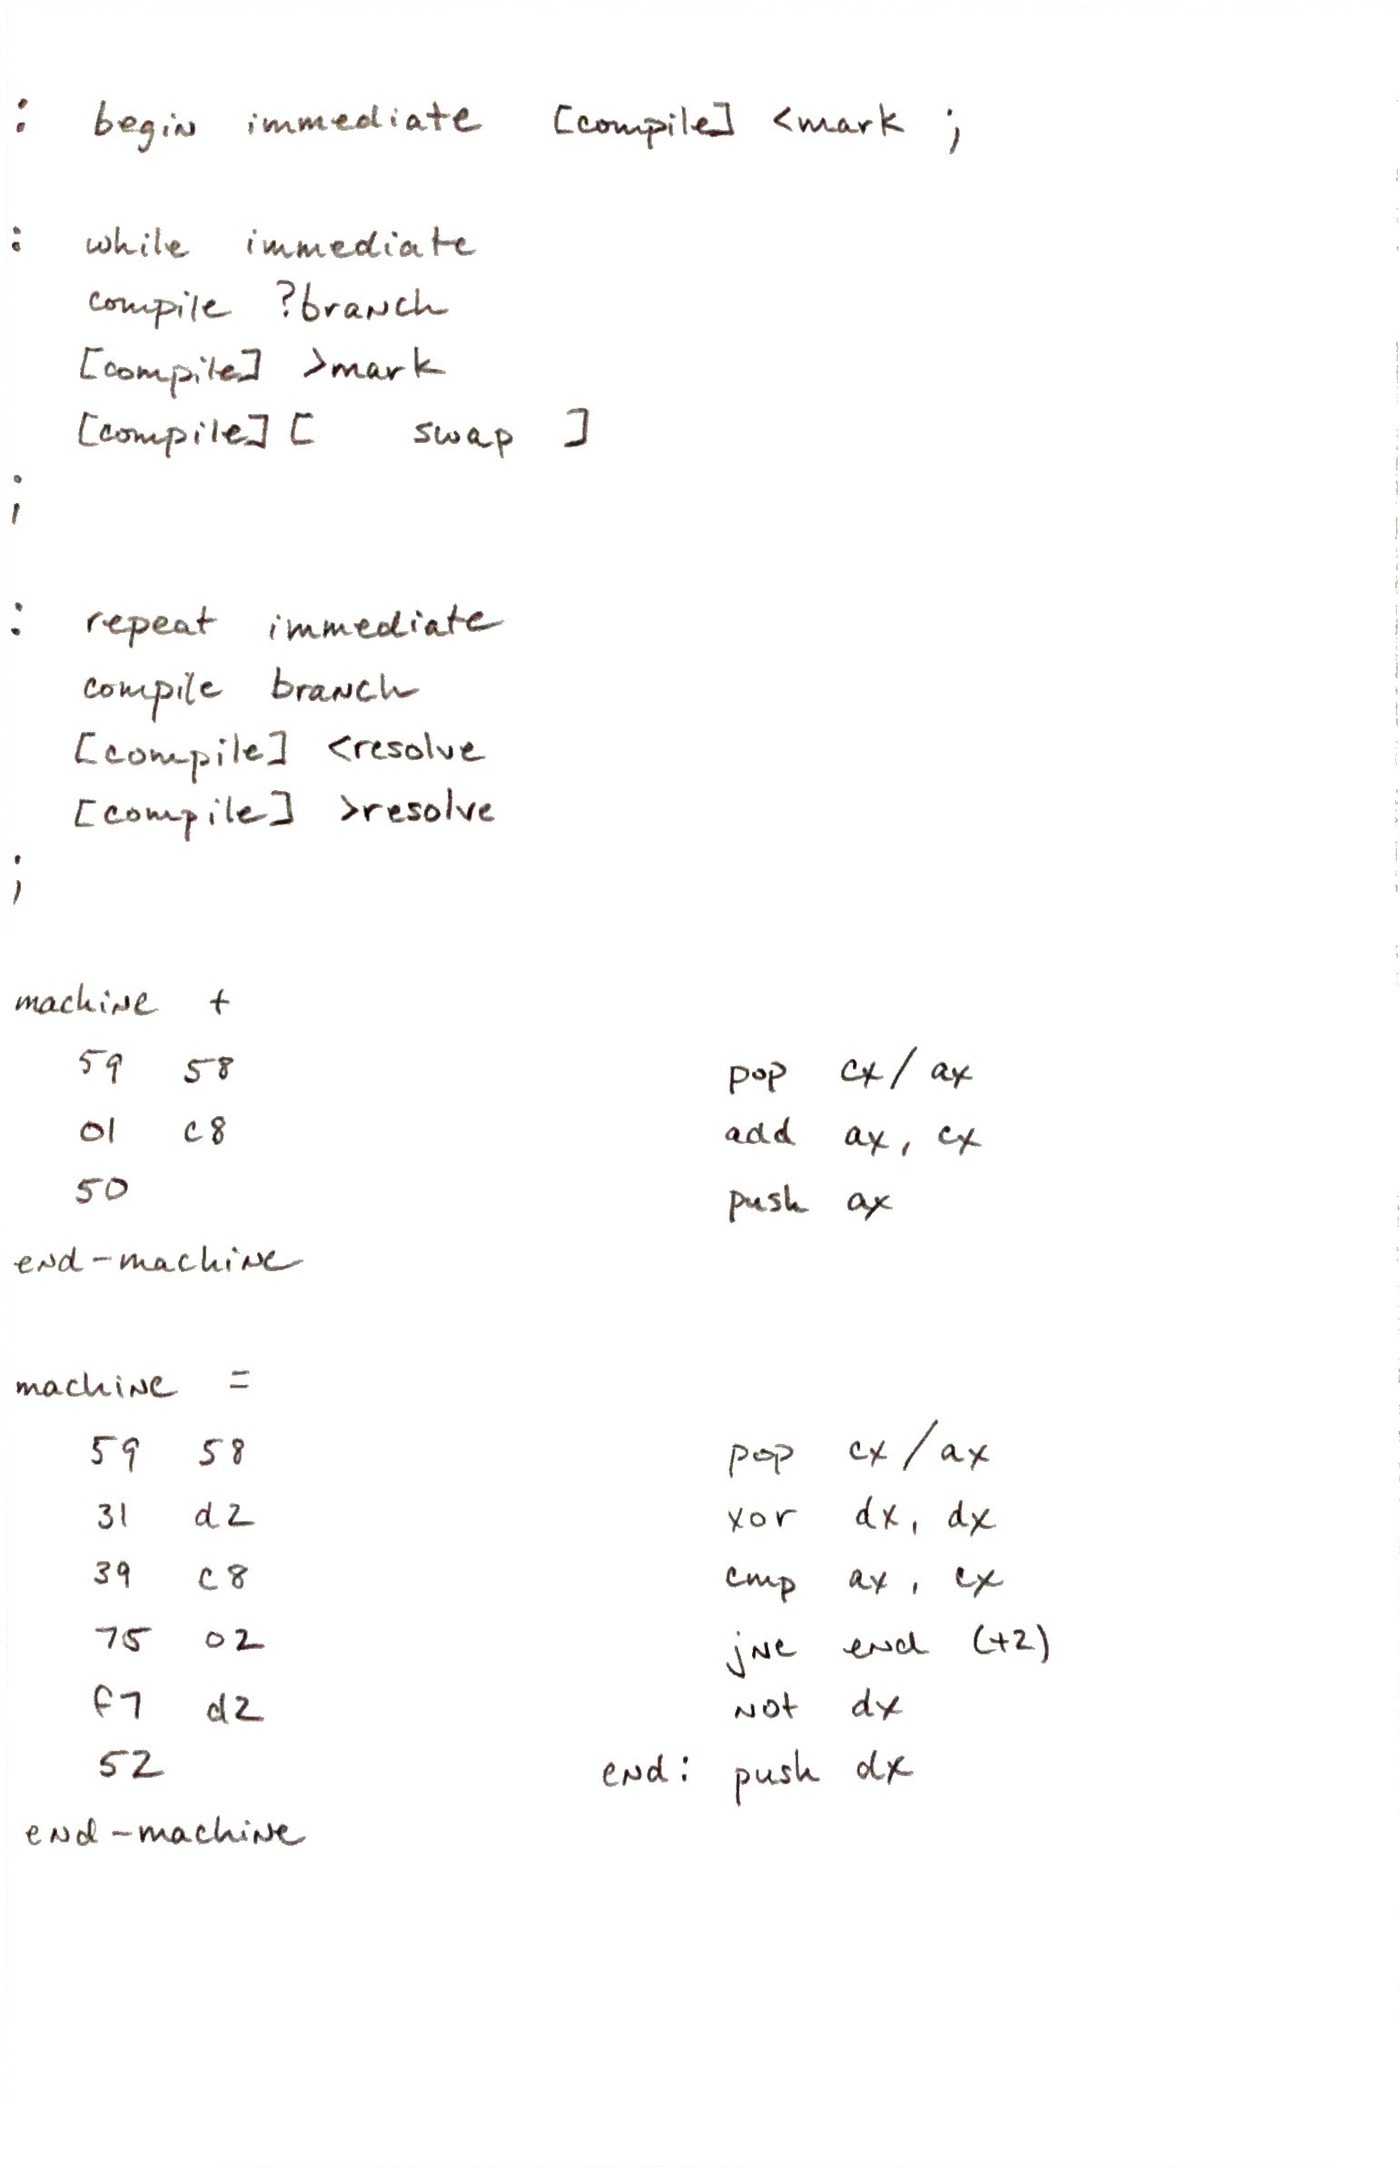 : begin immediate [compile] <mark ;
: while immediate
compile ?branch
[compile] >mark
[compile] [ swap ]
;
: repeat immediate
compile branch
[compile] <resolve
[compile] >resolve
;
machine +
59 58 pop cx/ax
01 c8 add ax, cx
50 push ax
end-machine
machine =
59 58 pop cx/ax
31 d2 xor dx, dx
39 c8 cmp ax, cx
75 02 jne end (+2)
f7 d2 not dx
52 end: push dx
end-machine